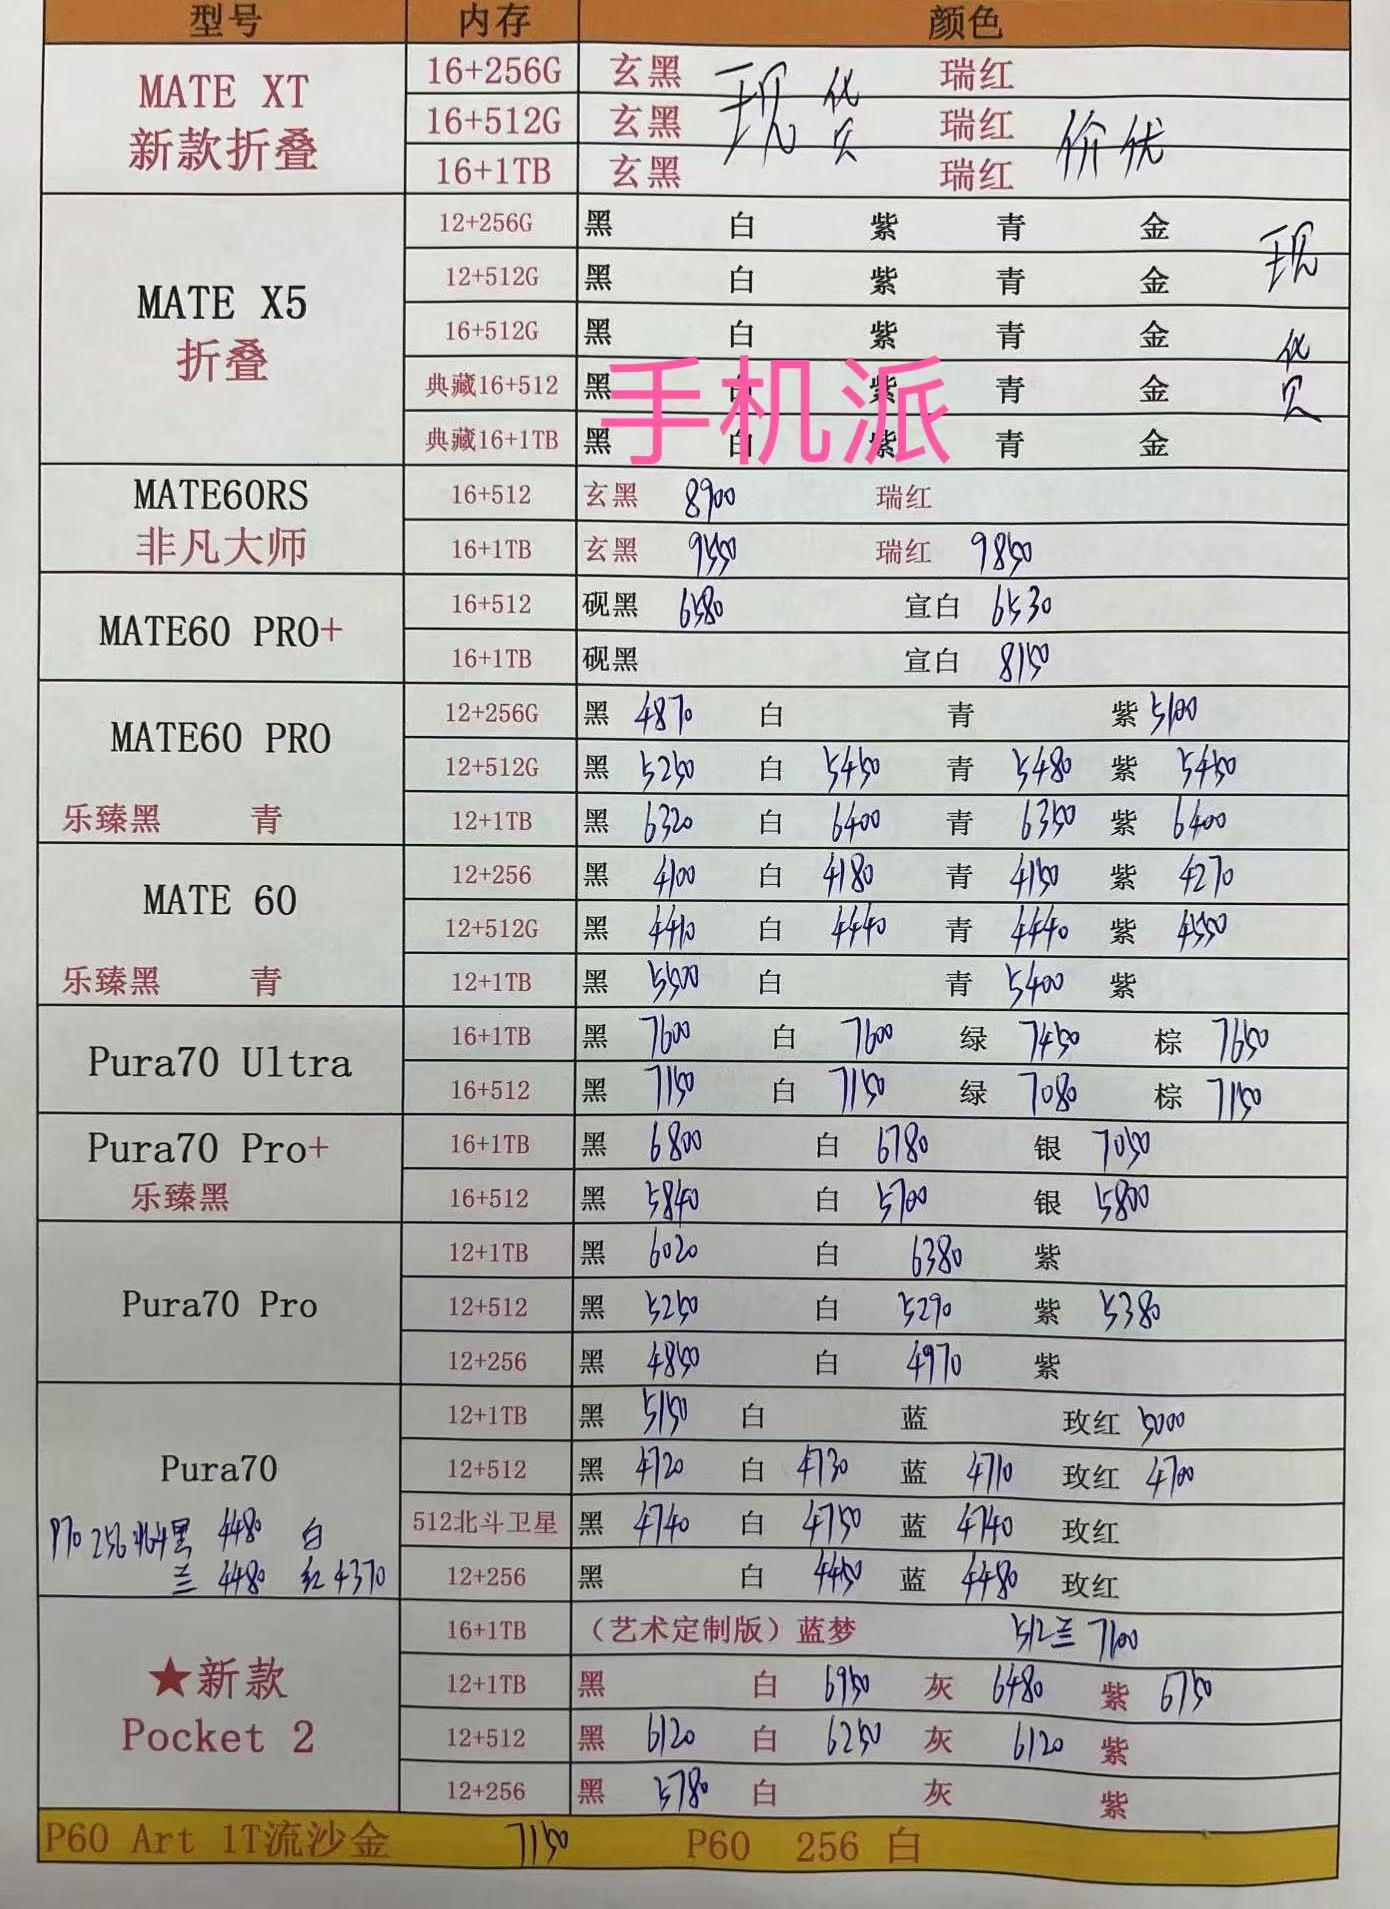 型号 内存 颜色
MATE XT 新款折叠
16+256G 玄黑 瑞红
16+512G 玄黑 瑞红
16+1TB 玄黑 瑞红
现货 价优
MATE X5 折叠
12+256G 黑 白 紫 青 金
12+512G 黑 白 紫 青 金
16+512G 黑 白 紫 青 金
典藏16+512 黑 白 紫 青 金
典藏16+1TB 黑 白 紫 青 金
现货
手机派
MATE60RS 非凡大师
16+512 玄黑 8900 瑞红
16+1TB 玄黑 9550 瑞红 9850
MATE60 PRO+
16+512 砚黑 6580 宣白 6530
16+1TB 砚黑 宣白 8150
MATE60 PRO
乐臻黑 青
12+256G 黑 4870 白 青 紫 5100
12+512G 黑 5250 白 5450 青 5480 紫 5450
12+1TB 黑 6320 白 6400 青 6350 紫 6400
MATE 60
乐臻黑 青
12+256 黑 4100 白 4180 青 4150 紫 4270
12+512G 黑 4410 白 4440 青 4440 紫 4550
12+1TB 黑 5500 白 青 5400 紫
Pura70 Ultra
16+1TB 黑 7600 白 7600 绿 7450 棕 7650
16+512 黑 7150 白 7150 绿 7080 棕 7150
Pura70 Pro+
乐臻黑
16+1TB 黑 6800 白 6780 银 7050
16+512 黑 5840 白 5700 银 5800
Pura70 Pro
12+1TB 黑 6020 白 6380 紫
12+512 黑 5250 白 5290 紫 5380
12+256 黑 4850 白 4970 紫
Pura70
P70 256 北斗黑 4480 白
兰 4480 红 4370
12+1TB 黑 5150 白 蓝 玫红 5000
12+512 黑 4720 白 4730 蓝 4710 玫红 4700
512北斗卫星 黑 4740 白 4750 蓝 4740 玫红
12+256 黑 白 4450 蓝 4480 玫红
★新款 Pocket 2
16+1TB （艺术定制版）蓝梦 512兰 7100
12+1TB 黑 白 6950 灰 6480 紫 6750
12+512 黑 6120 白 6250 灰 6120 紫
12+256 黑 5780 白 灰 紫
P60 Art 1T流沙金 7150 P60 256 白